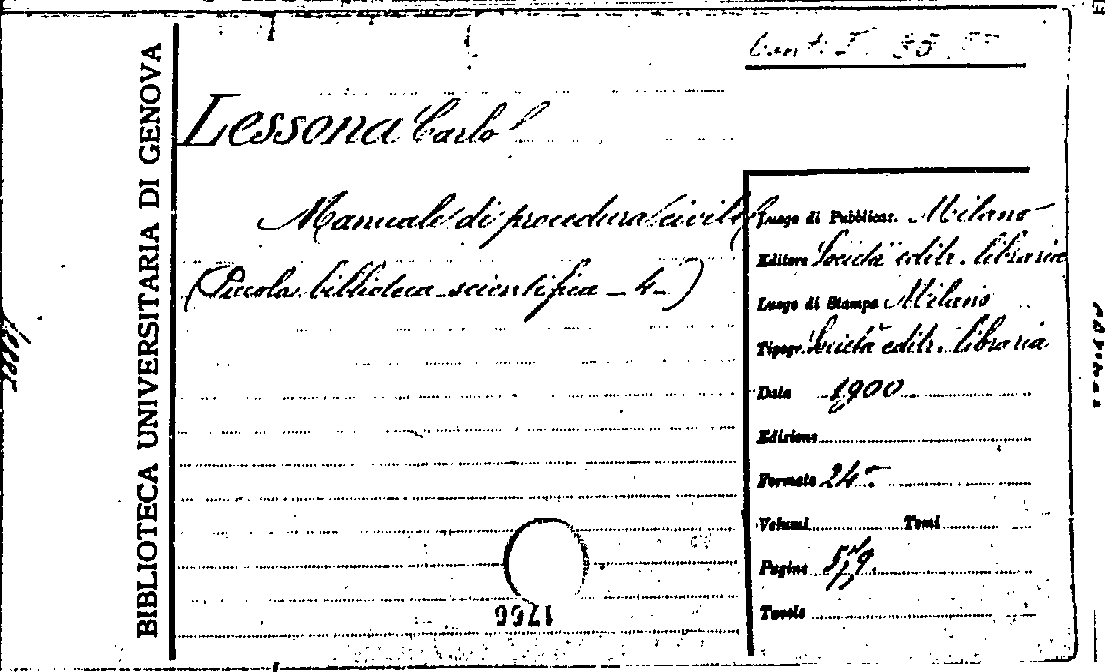 BIBLIOTECA UNIVERSITARIA DI GENOVA
Lessona Carlo
Manuale di procedura civile
(Piccola biblioteca scientifica - 4 -)
Luogo di Pubblicaz. Milano
Editore Società editr. libraria
Luogo di Stampa Milano
Tipogr. Società editr. libraria
Data 1900
Edizione
Formato 24°
Volumi Tomi
Pagine
Tavole
1766